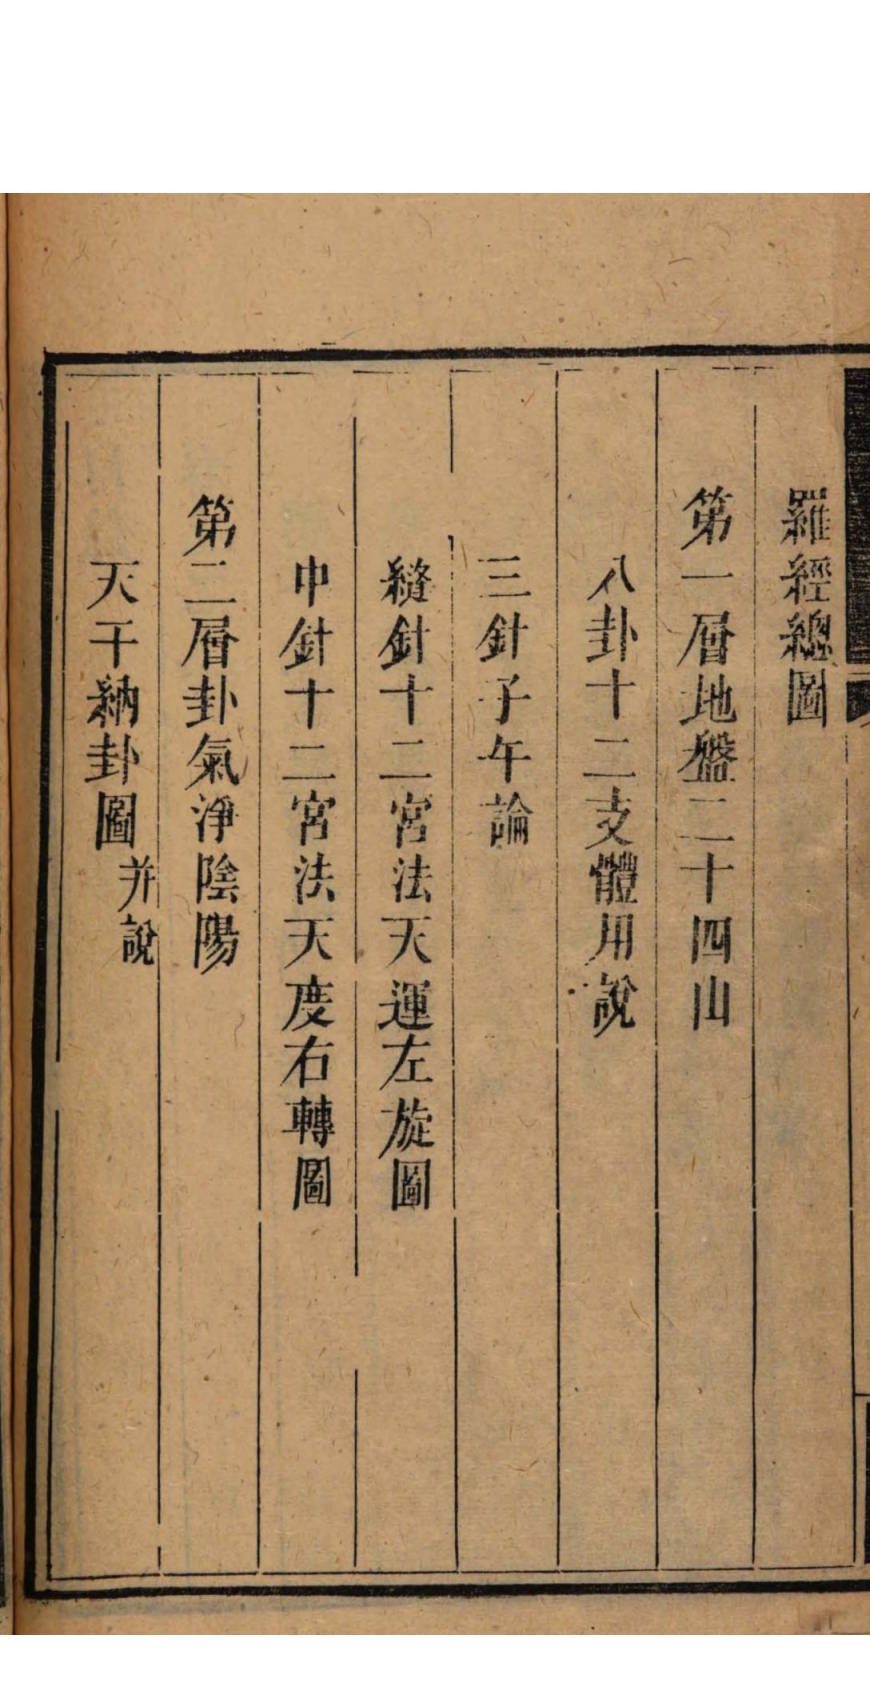 羅經總圖
第一層地盤二十四山
八卦十二支體用說
三針子午論
縫針十二宮法天運左旋圖
中針十二宮法天度右轉圖
第二層卦氣淨陰陽
天干納卦圖并說